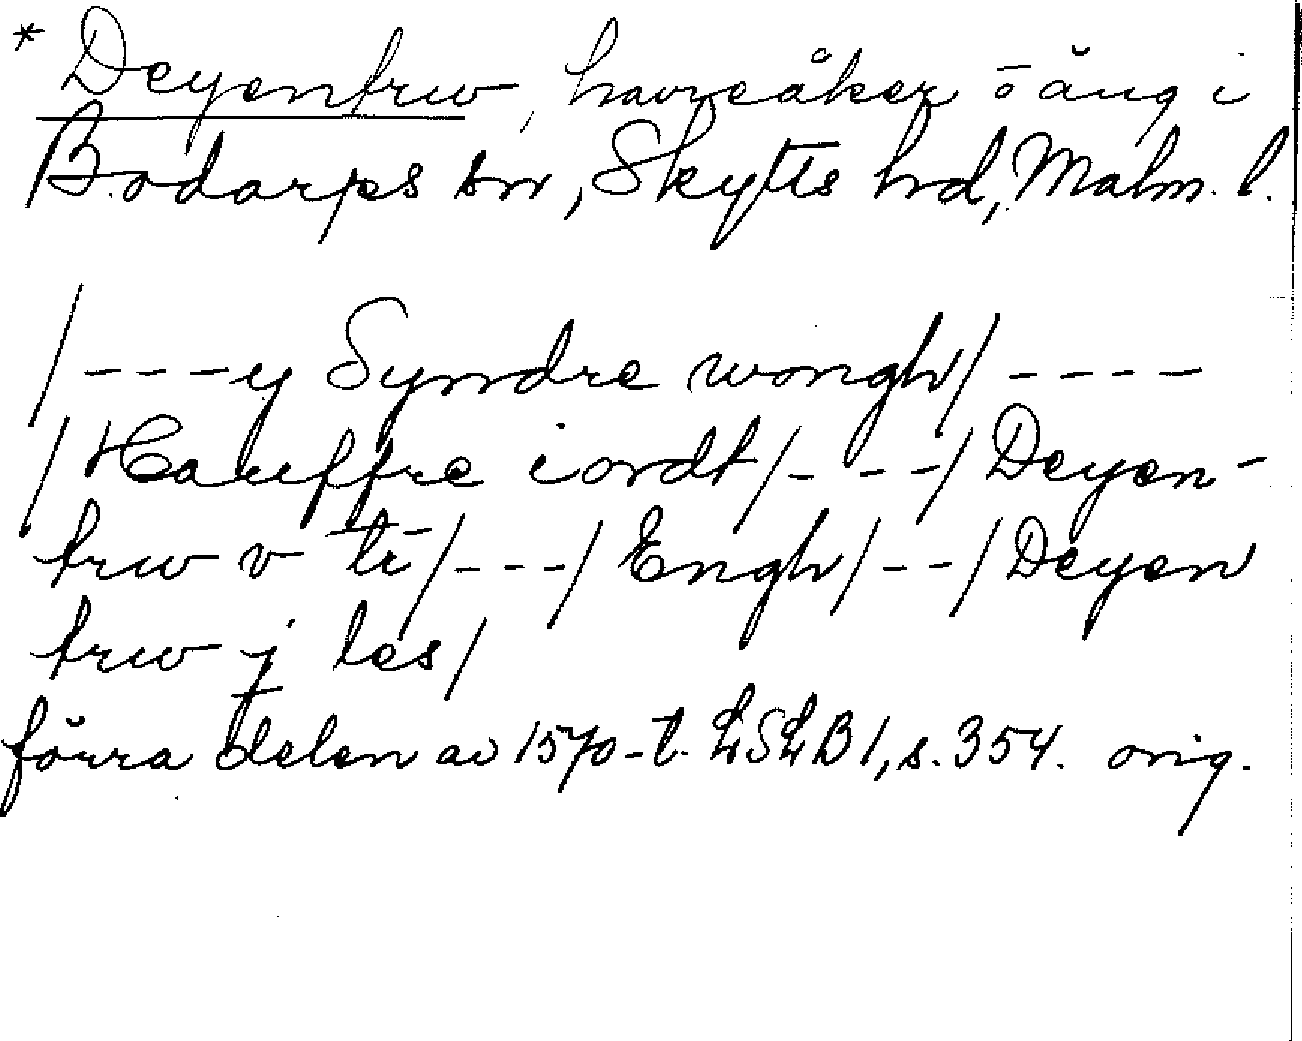 * Deyenfrw, havreåker o äng i
Bodarps sn, Skytts hd, Malm. l.
/---y Syndre wongh/----
/Hauffre iordt/---/Deyen-
frw v tü/---/Engh/--/Deyen
frw j les/
förra delen av 1570-t. LSLB 1, s. 354. orig.